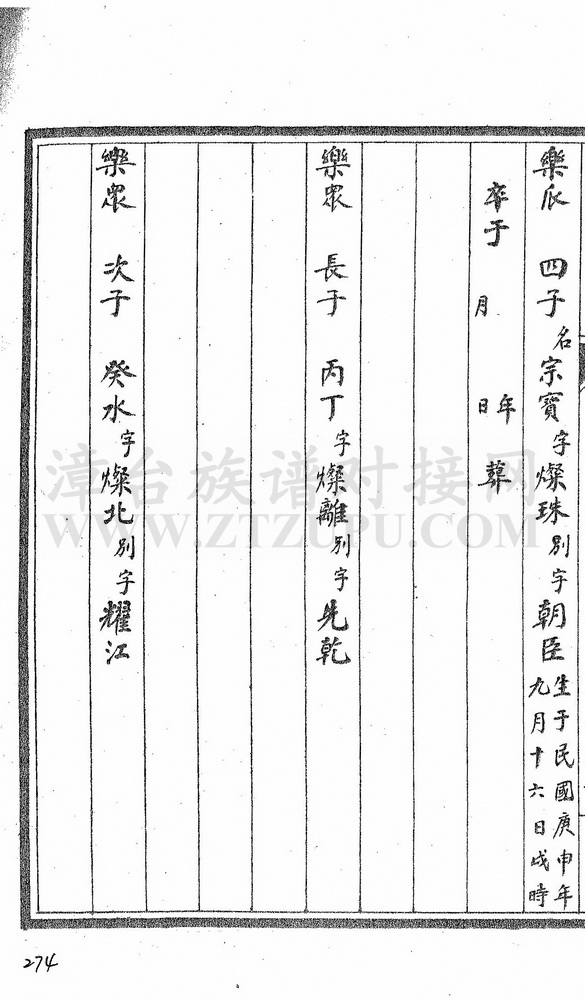 樂派 四子 名宗寶 字燦珠 別字朝臣 生于民國庚申年
九月十六日戌時
卒于 年
月 日 葬
樂眾 長子 丙丁 字燦離 別字先乾
樂眾 次子 癸水 字燦北 別字耀江
漳台族谱对接网
WWW.ZTZUPU.COM
274